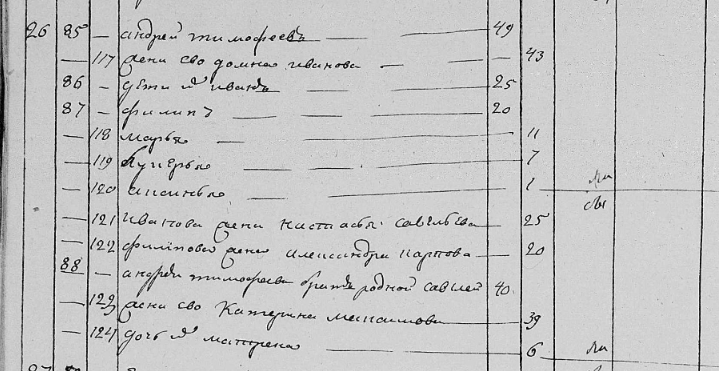 26 85 — андрей тимофеевъ — 49
— 117 жена ево домна иванова — — 43
86 — дети иванъ — 25
87 — филипъ — 20
— 118 марья — 11
— 119 лукерья — 7
— 120 аксинья — 1
— 121 иванова жена настасья савельева — 25
— 122 филипова жена александра карпова — 20
88 — андрея тимофеева братъ родной савлей 40
— 123 жена ево Катерина максимова — 39
— 124 дочь матрена — 6